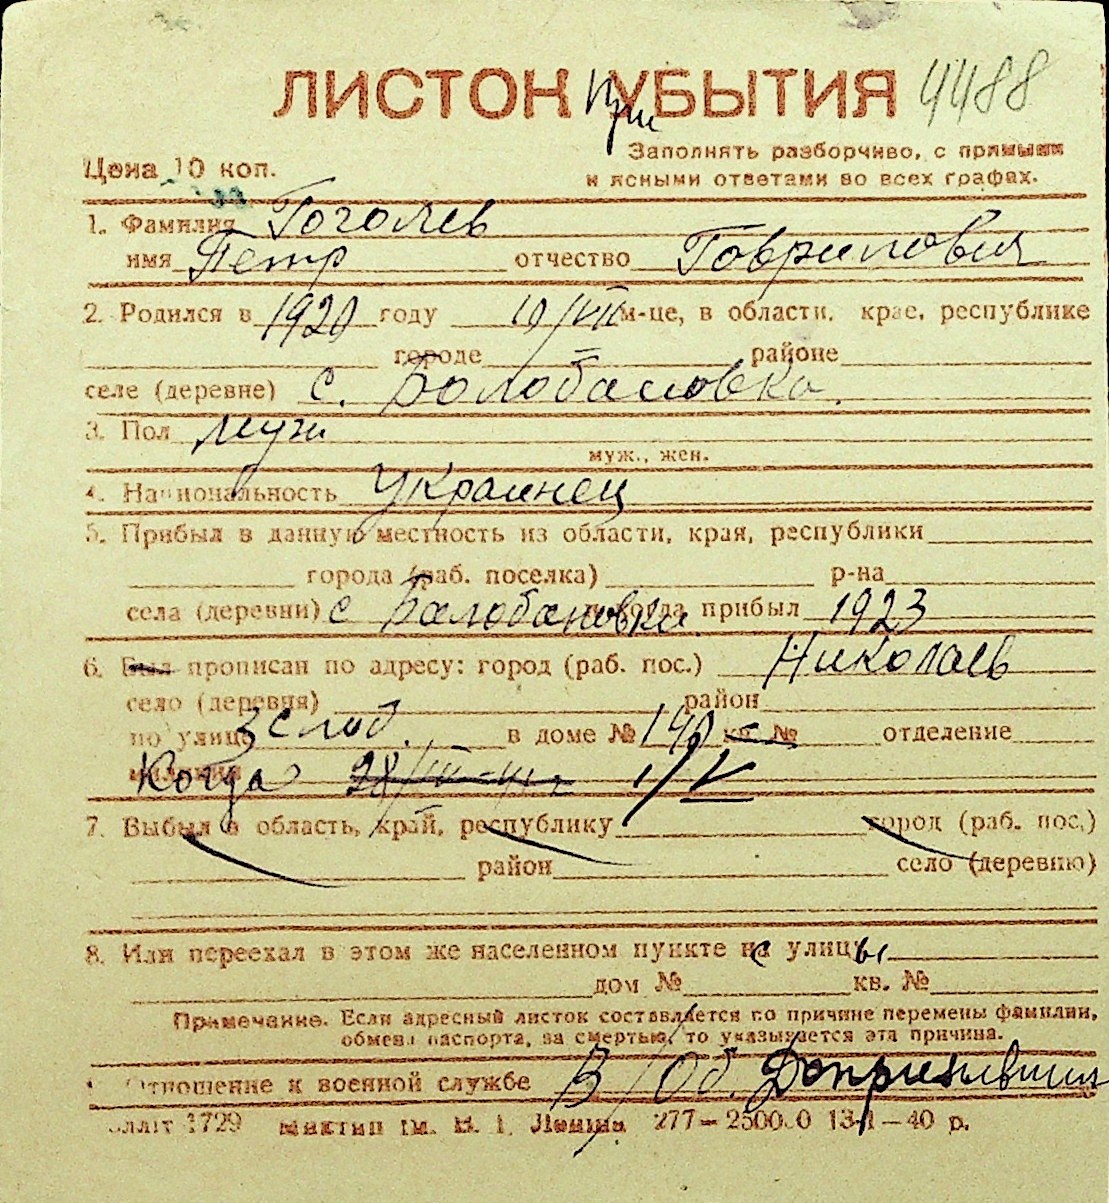 ЛИСТОК При УБЫТИЯ 4488
Цена 10 коп.
Заполнять разборчиво, с прямыми
и ясными ответами во всех графах.
1. Фамилия Гоголев
имя Петр отчество Говрилович
2. Родился в 1920 году 10/VII м-це, в области, крае, республике
городе районе
селе (деревне) с. Балобановка.
3. Пол муж
муж., жен.
4. Национальность Украинец
5. Прибыл в данную местность из области, края, республики
города (раб. поселка) р-на
села (деревни) с Балобановки и когда прибыл 1923
6. Был прописан по адресу: город (раб. пос.) Николаев
село (деревня) район
по улице 3 слоб. в доме № 140 кв. № отделение
милиции Когда 1/V
7. Выбыл в область, край, республику город (раб. пос.)
район село (деревню)
8. Или переехал в этом же населенном пункте с улицы
дом № кв. №
Примечание. Если адресный листок составляется по причине перемены фамилии,
обмена паспорта, за смертью, то указывается эта причина.
Отношение к военной службе В/Об. Допризывник
Облліт 1729 277—250000 13-I—40 р.